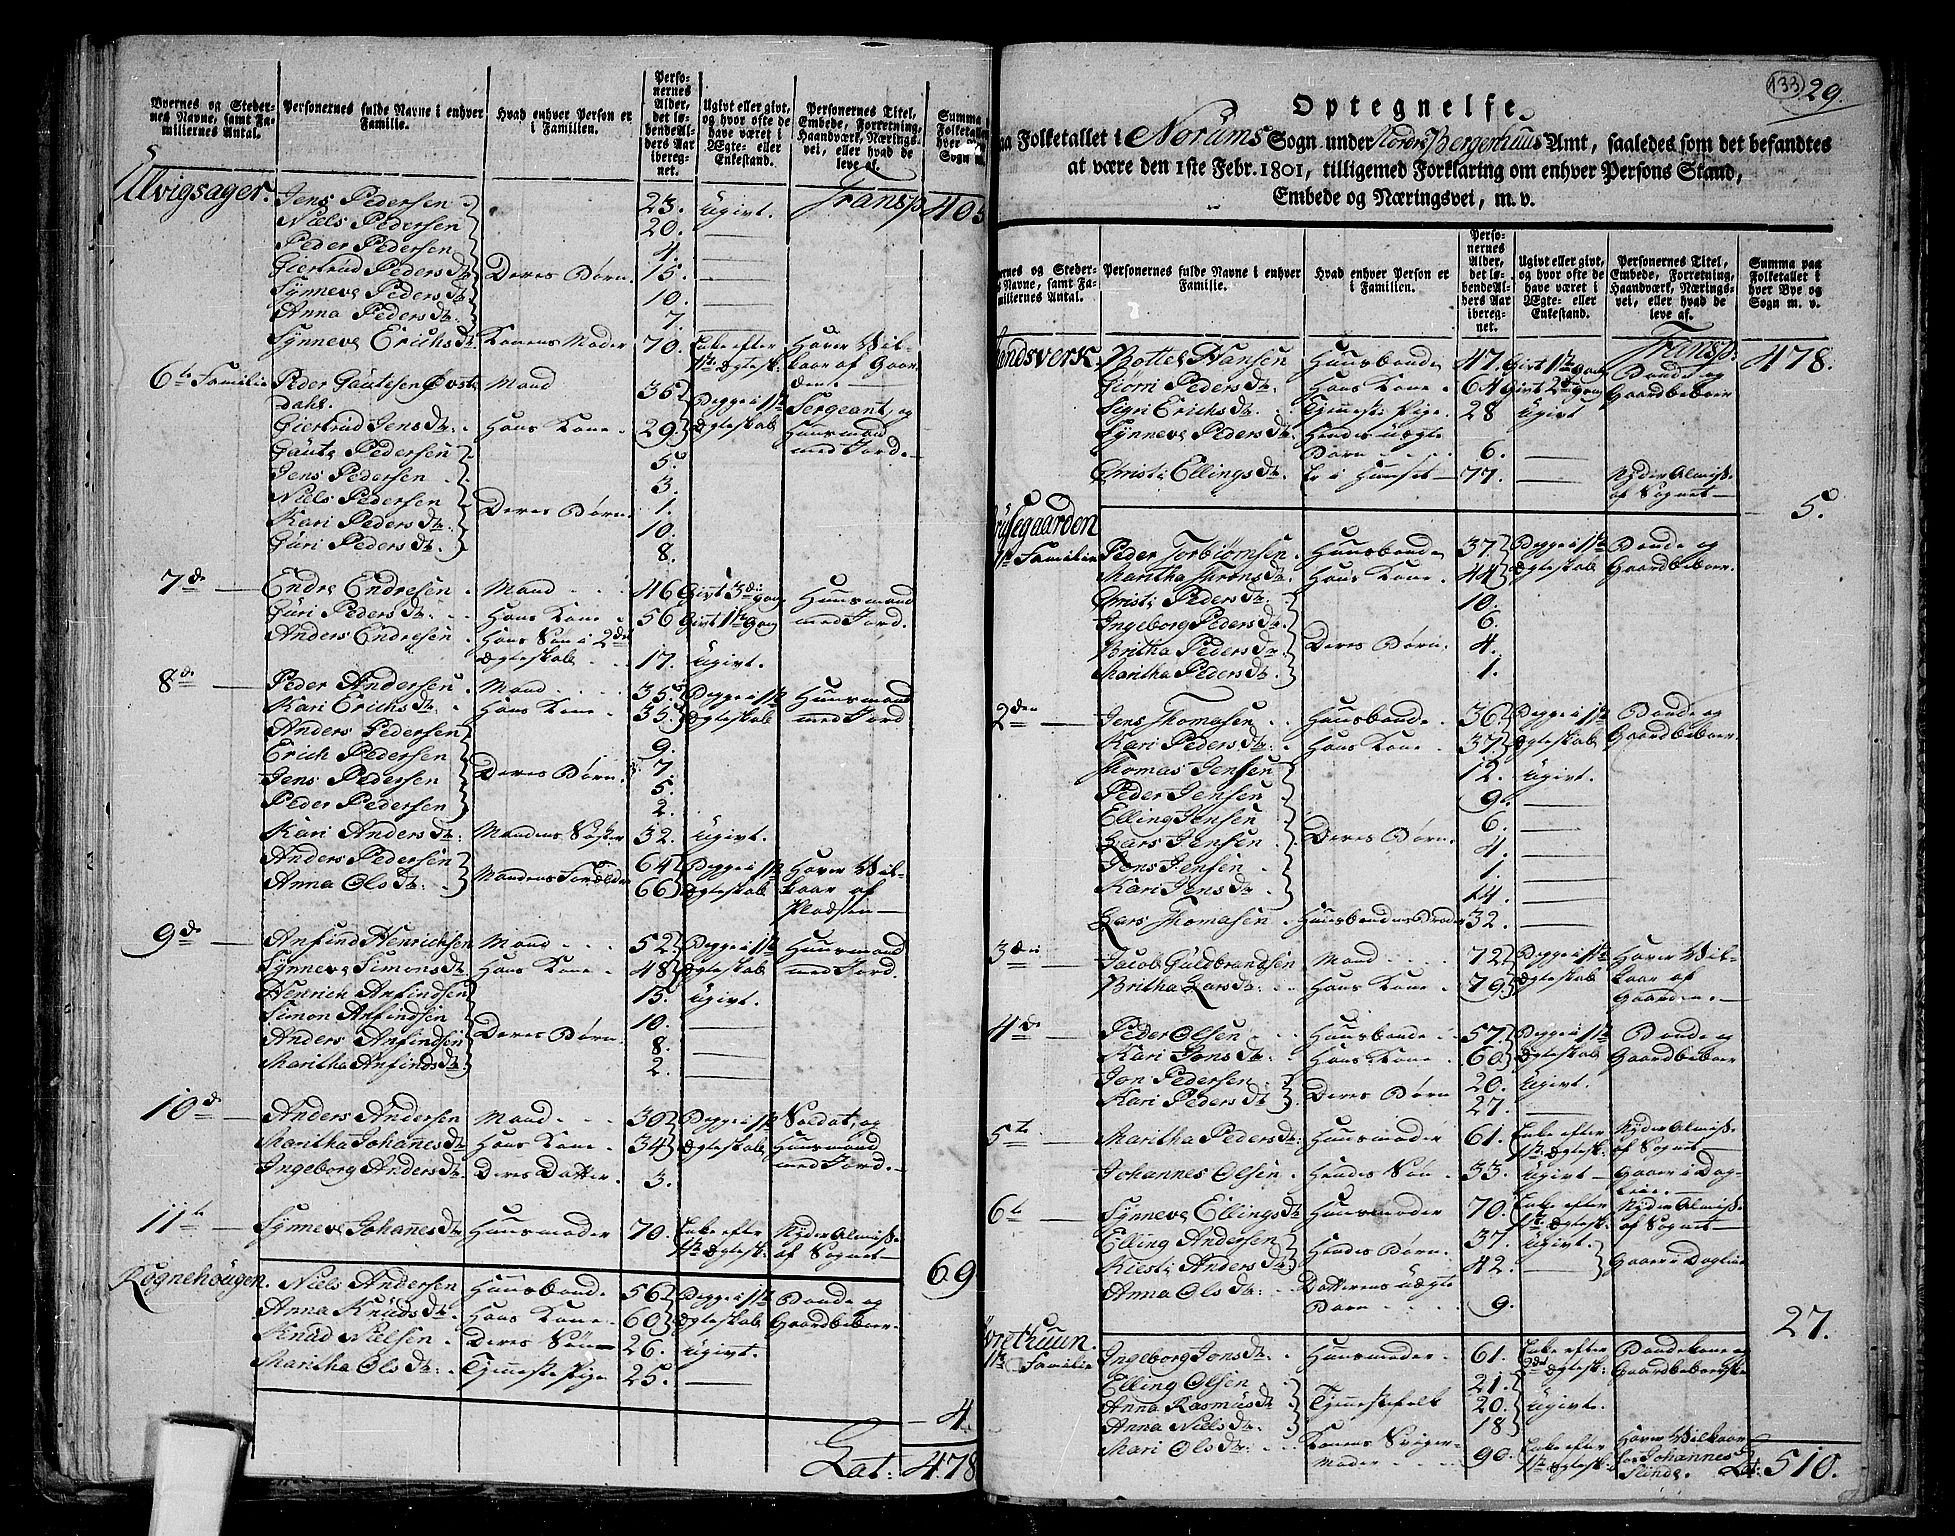 Byernes og Steder-
nes Navne, samt Fa-
miliernes Antal.
Personernes fulde Navne i enhver
Familie.
Hvad enhver Person er
i Familien.
Perso-
nernes
Alder,
det lø-
bende Al-
ders Aar
ibereg-
net.
Ugivt eller givt,
og hvor ofte de
have været i
Ægte- eller
Enkestand.
Personernes Titel,
Embede, Forretning,
Haandværk, Nærings-
vei, eller hvad de
leve af.
Summa
Folketalle
hver
Sogn m.
Ulvigsager. Jens Pedersen 23. Ugivt. Transp. 405
Niels Pedersen 20. —
Peder Pedersen 4. —
Giertrud Peders Dr. Deres Børn. 15. —
Synneve Peders Dr. 10. —
Anna Peders Dr. 7.
Synneve Erichs Dr. Konens Moder 70. Enke efter Haver Vil-
1te Ægtesk. kaar af Gaar
den. —
6te Familie Peder Gautesen Øvst Mand 36 Begge i 1te Sergeant, og
Dahl.
Giertrud Jens Dr. Hans Kone 29 Ægteskab Huusmand
med Jord. —
Gaute Pedersen 5.
Jens Pedersen 3.
Niels Pedersen Deres Børn. 1.
Kari Peders Dr. 10.
Guri Peders Dr. 8.
7de — Endre Endresen Mand 46 Givt 3die gang Huusmand
Guri Peders Dr. Hans Kone 56 Givt 1te Gang med Jord.
Anders Endresen Hans Søn i 2det
Ægteskab 17. Ugivt.
8de — Peder Andersen Mand 35. Begge i 1te Huusmand
Kari Erichs Dr. Hans Kone 35. Ægteskab med Jord.
Anders Pedersen 9.
Erich Pedersen Deres Børn. 7.
Jens Pedersen 5.
Peder Pedersen 2.
Kari Anders Dr. Mandens Søster 32. Ugivt.
Anders Pedersen Mandens Forældre 64 Begge i 1te Haver Vil-
Anna Ols Dr. 66 Ægteskab kaar af
Pladsen —
9de — Anfind Henrichsen Mand 52. Begge i 1te Huusmand
Synneve Simons Dr. Hans Kone 48 Ægteskab med Jord.
Henrich Anfindsen 15. Ugivt.
Simon Anfindsen Deres Børn. 10. —
Anders Anfindsen 8. —
Maritha Anfinds Dr. 2. —
10de — Anders Andersen Mand 30 Begge i 1te Soldat, og
Maritha Johanes Dr. Hans Kone 34 Ægteskab Huusmand
Ingeborg Anders Dr. Deres Datter 3. med Jord. —
11te — Synneve Johanes Dr. Huusmoder 70. Enke efter Nyder Almisse
1te Ægtesk. af Sognet —
69
Rognehougen. Niels Andersen Huusbonde 56 Begge i 1te Bonde og
Anna Knuds Dr. Hans Kone 60 Ægteskab Gaardbeboer.
Knud Nielsen Deres Søn 26. Ugivt.
Maritha Ols Dr. Tjeneste Pige 25. —
4.
Lat: 478
133
29.
Optegnelse
aa Folketallet i Norums Sogn under Nordre Bergenhuus Amt, saaledes som det befandtes
at være den 1ste Febr. 1801, tilligemed Forklaring om enhver Persons Stand,
Embede og Næringsvei, m. v.
ernes og Steder-
s Navne, samt Fa-
miliernes Antal.
Personernes fulde Navne i enhver
Familie.
Hvad enhver Person er
i Familien.
Perso-
nernes
Alder,
det lø-
bende Al-
ders Aar
ibereg-
net.
Ugivt eller givt,
og hvor ofte de
have været i
Ægte- eller
Enkestand.
Personernes Titel,
Embede, Forretning,
Haandværk, Nærings-
vei, eller hvad de
leve af.
Summa paa
Folketallet i
hver Bye og
Sogn m. v.
Transp. 478.
andsverk. Botter Hansen Huusbonde 47. Givt 1te gang Bonde og
Giorri Peders Dr. Hans Kone 64 Givt 2den gang Gaardbeboer
Sigri Erichs Dr. Tjeneste Pige 28 Ugivt
Synneve Peders Dr. Hendes uægte
Barn 6. —
Christi Ellings Dr. Er i Huuset — 77. Nyder Almisse
af Sognet —
5.
usegaarden
1te Familie Peder Torbiørnsen Huusbonde 37. Begge i 1te Bonde og
Maritha Hans Kone 44 Ægteskab Gaardbeboer.
Christi Peders Dr. 10.
Ingeborg Peders Dr. 6.
Britha Peders Dr. Deres Børn. 4.
Maritha Peders Dr. 1.
2den — Jens Thomasen Huusbonde 36. Begge i 1te Bonde og
Kari Peders Dr. Hans Kone 37 Ægteskab Gaardbeboer.
Thomas Jensen 12. Ugivt.
Peder Jensen 9. —
Elling Jensen 6. —
Lars Jensen Deres Børn. 4. —
Jens Jensen 1. —
Kari Jens Dr. 14. —
Lars Thomasen Huusbondens Broder 32. —
3die — Jacob Guldbrandsen Mand 72 Begge i 1te Haver Vil-
Britha Lars Dr. Hans Kone 79 Ægteskab kaar af
Gaarden. —
4de — Peder Olsen Huusbonde 57. Begge i 1te Bonde og
Kari Jons Dr. Hans Kone 60 Ægteskab Gaardbeboer
Jon Pedersen 20. Ugivt.
Kari Peders Dr. Deres Børn 27. —
5te — Maritha Peders Dr. Huusmoder 61. Enke efter Nyder Almisse
1te Ægtesk. af Sognet —
Johannes Olsen Hendes Søn 33. Ugivt — Gaaer i Dag-
leie. —
6te — Synneve Ellings Dr. Huusmoder 70. Enke efter Nyder Almisse
1te Ægtesk. af Sognet —
Elling Andersen Hendes Børn. 37. Ugivt.
Kiesti Anders Dr. 42. — Gaaer i Dagleie
Anna Ols Dr. Datterens uægte
Barn 9.
27.
orethuun.
1te Familie Ingeborg Jons Dr. Huusmoder 61. Enke efter Bondekone og
2det Ægtesk. Gaardbeboerske
Elling Olsen 21.
Anna Rasmus Dr. Tjenestefolk 20. Ugivt.
Anna Niels Dr. 18
Mari Ols Dr. Konens Sviger- Enke efter Haver Vilkaar
Moder 90. 1te Ægtesk. hos Johannes
Slinde. Lat: 510.